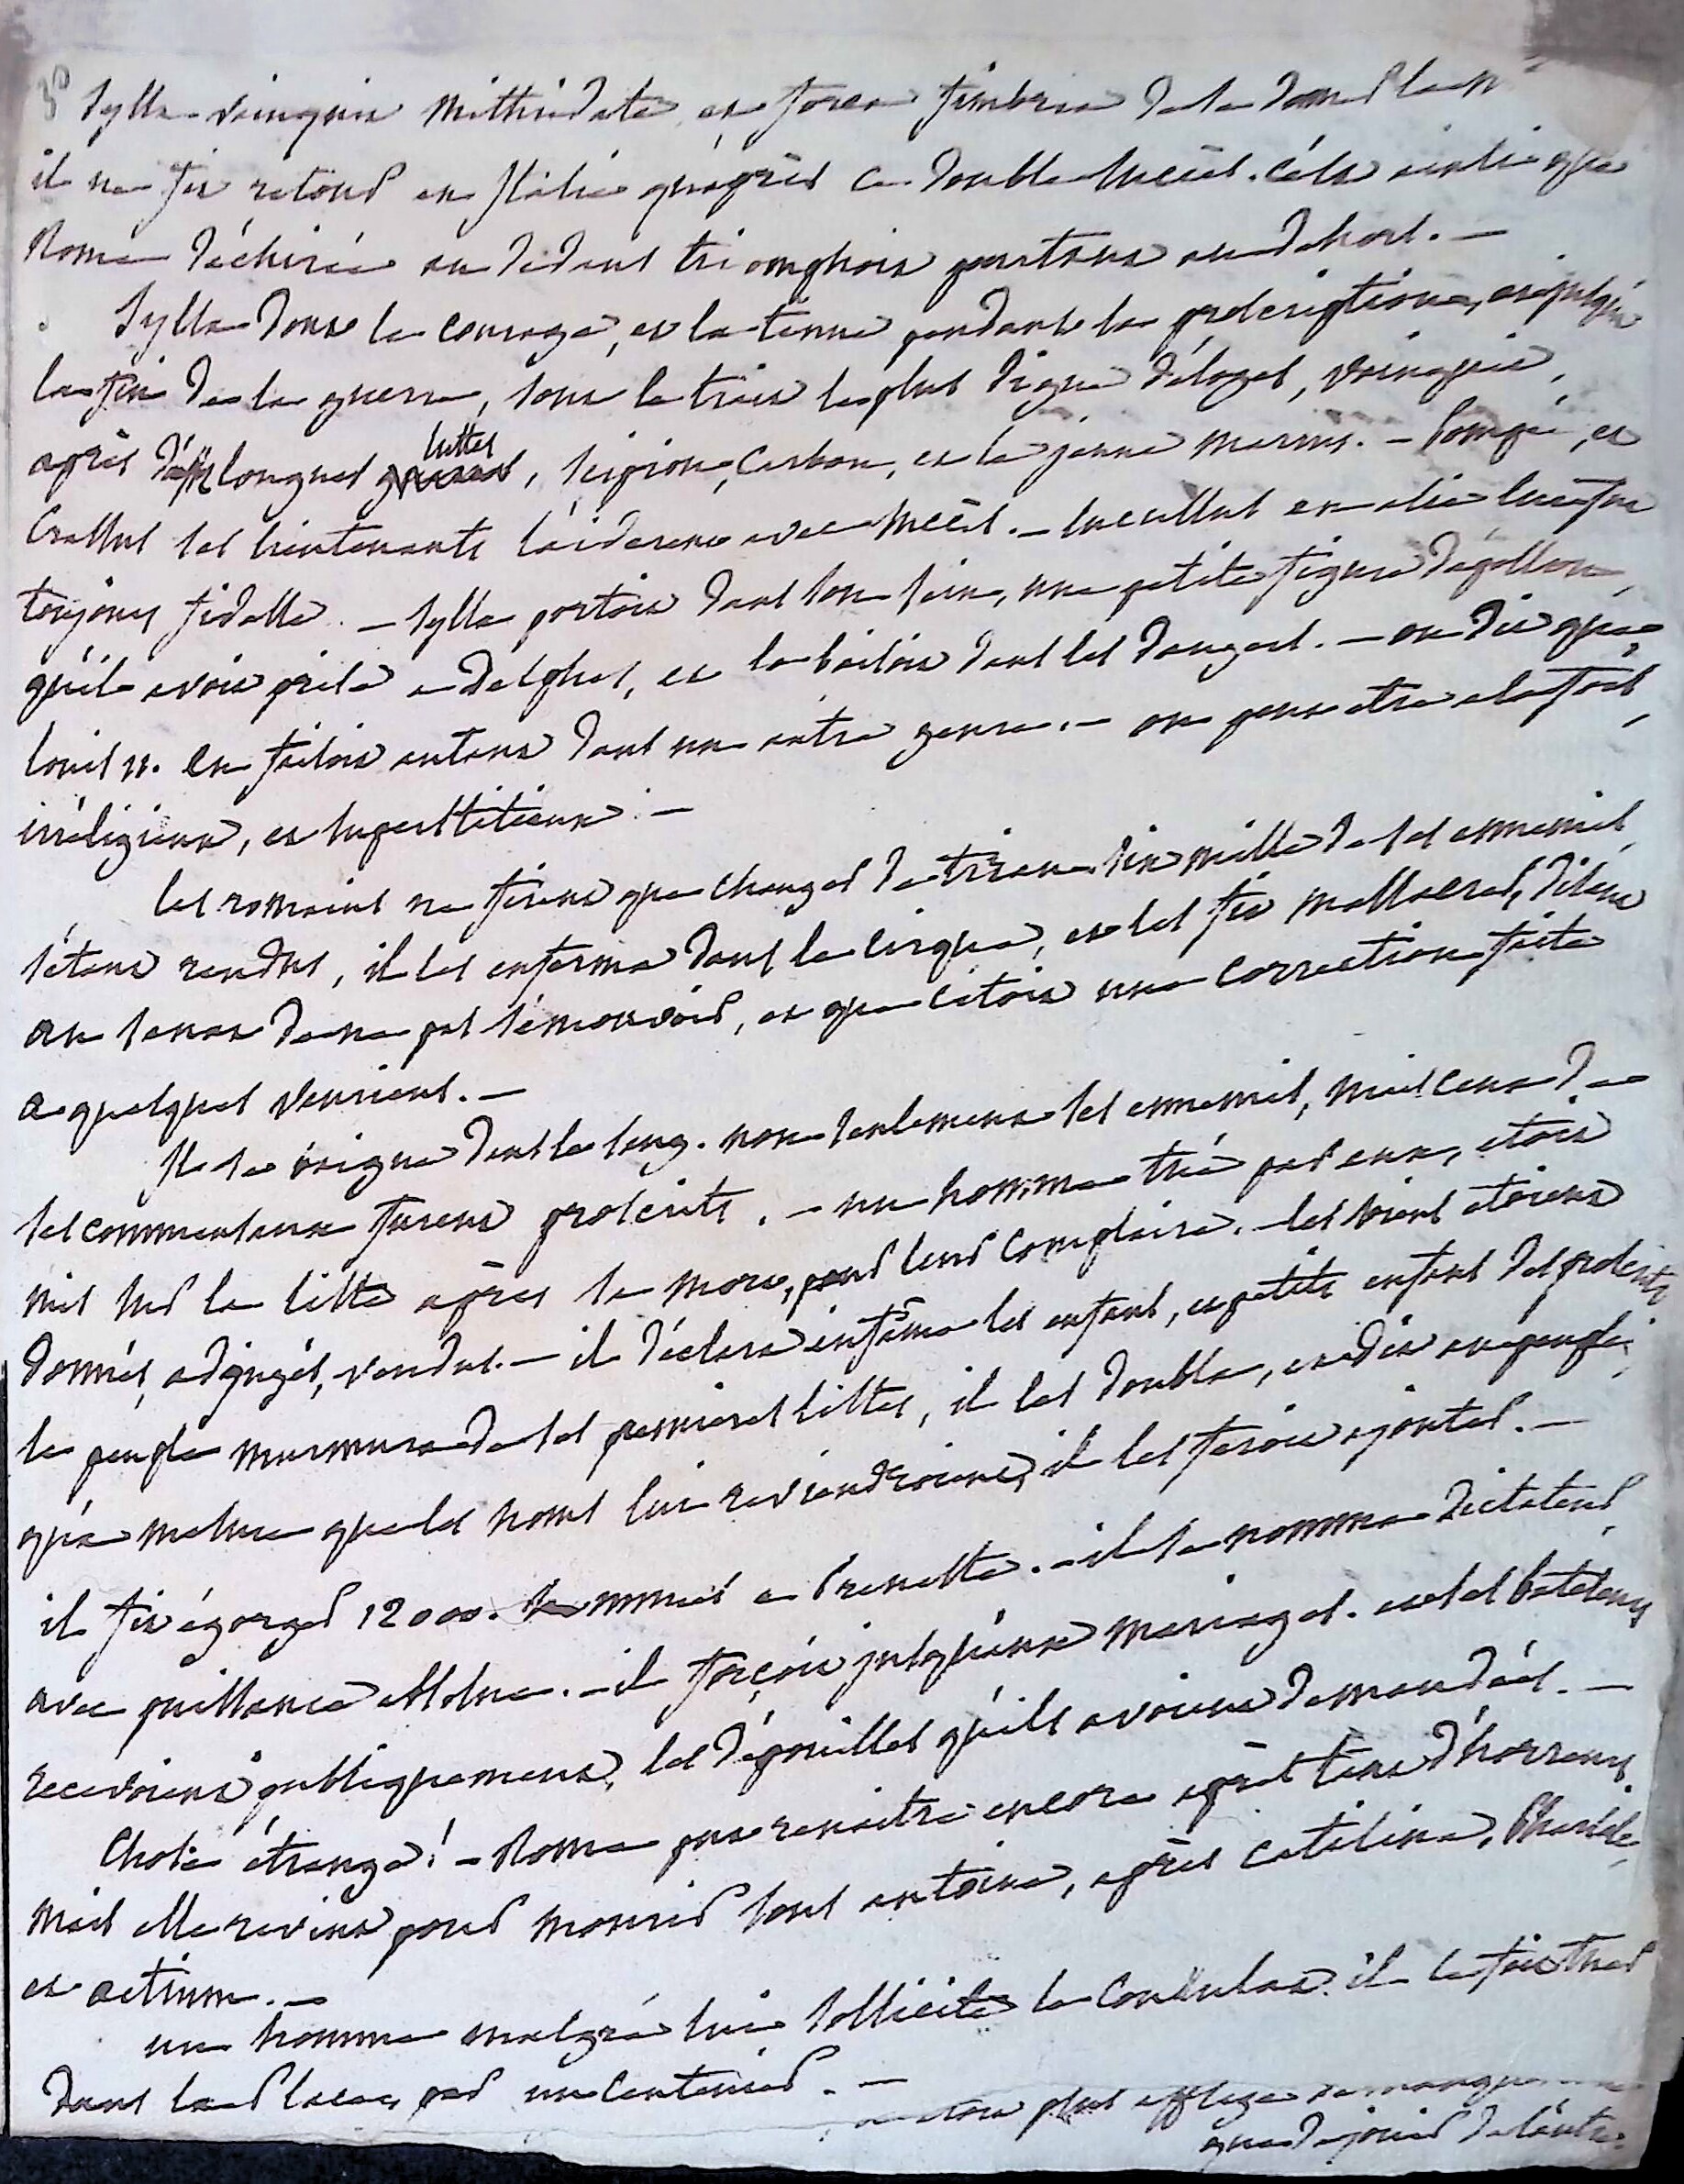 Sylla vainquit Mithridate, et força fimbria de se donner la m
il ne fit retour en Italie qu'après ce double succès. c'est ainsi que
Rome déchirée au dedans triomphoit partout au dehors. —
Sylla dont le courage, et la tenue pendant la proscription, et jusqu'à
la fin de la guerre, sont le trait le plus digne d'éloges, vainquit,
après de longues luttes, scipion, Carbon, et le jeune marius. — Pompée, et
Crassus ses lieutenants l'aiderent avec succès. — Lucullus en asie lui fut
toujours fidelle. — Sylla portoit dans son sein, une petite figure d'apollon,
qu'il avoit prise a delphes, et la baisoit dans les dangers. — on dit que
louis 11. en faisoit autant dans un autre genre. — on peut etre a la fois,
irréligieux, et superstitieux. —
les romains ne firent que changer de tiran. six mille de ses ennemis,
s'étant rendus, il les enferma dans le cirque, et les fit massacrer, disant
au senat de ne pas s'émouvoir, et que c'étoit une correction faite
a quelques vauriens. —
Il se baigna dans le sang. non seulement ses ennemis, mais ceux de
ses commentaux furent proscrits. — un homme tué par eux, etoit
mis sur la liste après sa mort, pour leur complaire. — les biens etoient
donnés, adjugés, vendus. — il déclara infâmes les enfans, et petits enfans des proscrits
le peuple murmura de ses premieres listes, il les doubla, et dit au peuple,
qu'a mesure que les noms lui reviendroient, il les feroit ajouter. —
il fit égorger 12000. hommes a Preneste. — il se nomma dictateur,
avec puissance absolue. — il forçoit jusqu'aux mariages. et ses bateleurs
recevoient publiquement, les dépouilles qu'ils avoient demandées. —
Chose étrange! — Rome put renaitre encore après tant d'horreurs.
mais elle revint pour mourir sous antoine, après catilina, Pharsale,
et actium. —
un homme malgré lui sollicite le Consulat. il le fait tuer
dans la place, par un Centurion. —
plus affligé de manquer
que de jouir de l'autre.